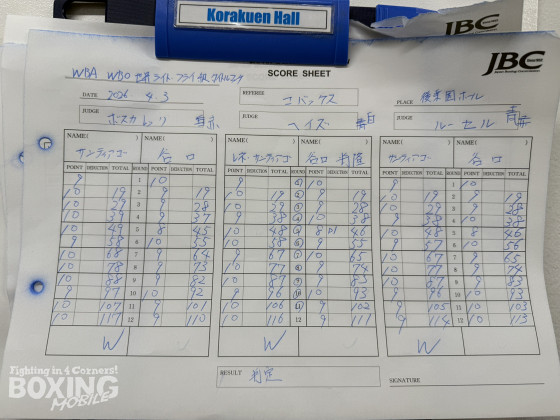 Korakuen Hall
JBC
WBA WBO 世界ライト・フライ級タイトルマッチ
SCORE SHEET
DATE 2026 4.3
REFEREE
PLACE 後楽園ホール
JUDGE
JUDGE ヘイズ
JUDGE ルーセル
NAME( ) NAME( ) NAME( ) NAME( ) NAME( ) NAME( )
サンティアゴ 谷口 レネ・サンティアゴ 谷口 将隆 サンティアゴ 谷口
POINT DEDUCTION TOTAL ROUND POINT DEDUCTION TOTAL POINT DEDUCTION TOTAL ROUND POINT DEDUCTION TOTAL POINT DEDUCTION TOTAL ROUND POINT DEDUCTION TOTAL
9 1 10 9 1 10 9 1 10
10 19 2 9 19 10 19 2 9 19 10 19 2 9 19
10 29 3 9 28
10 39 4 9 37
10 49 5 8 45 10 48 5 8 46 10 48 5 8 46
9 58 6 10 55 10 58 6 9 55 9 57 6 10 56
10 68 7 9 64 9 67 7 10 65 10 67 7 9 65
10 78 8 9 73 10 77 8 9 74 10 77 8 9 74
10 88 9 9 82 10 87 9 9 83 10 87 9 9 83
9 97 10 10 92 9 96 10 10 93 9 96 10 10 93
10 107 11 9 101 10 106 11 9 102 9 105 11 10 103
10 117 12 9 110 10 116 12 9 111 9 114 12 10 113
W W W
RESULT 判定
SIGNATURE
Fighting in 4 Corners!
BOXING
MOBILE